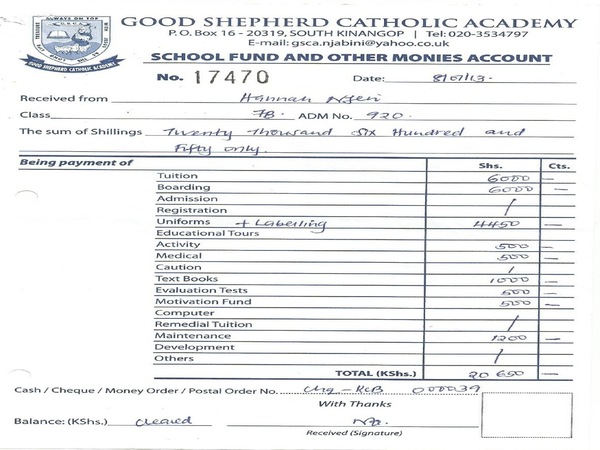 ALWAYS ON TOP
GOOD SHEPHERD CATHOLIC ACADEMY
GOOD SHEPHERD CATHOLIC ACADEMY
P. O. Box 16 - 20319, SOUTH KINANGOP | Tel: 020-3534797
E-mail: gsca.njabini@yahoo.co.uk
SCHOOL FUND AND OTHER MONIES ACCOUNT
No. 17470 Date: 8/01/13.
Received from Hannah
Class 7B. ADM No. 920.
The sum of Shillings Twenty Thousand Six Hundred and
Fifty only.
Being payment of Shs. Cts.
Tuition 6000 –
Boarding 6000 –
Admission
Registration /
Uniforms + Labelling 4450 –
Educational Tours
Activity 500 –
Medical 500 –
Caution /
Text Books 1000 –
Evaluation Tests 500 –
Motivation Fund 500 –
Computer
Remedial Tuition /
Maintenance 1200 –
Development
Others /
TOTAL (KShs.) 20 650 –
Cash / Cheque / Money Order / Postal Order No. Chq – KCB 000039
With Thanks
Balance: (KShs.) cleared
Received (Signature)